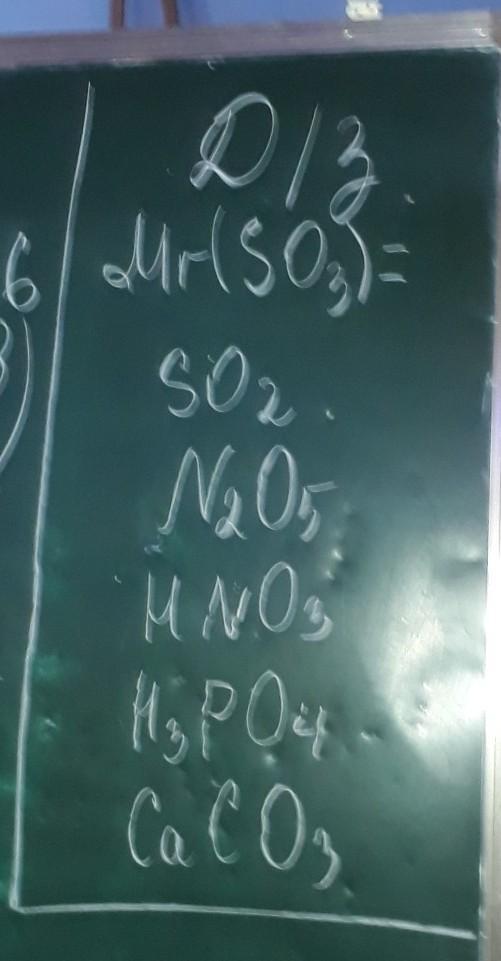 D/з.
6
Mr(SO₃)=
)
SO₂.
N₂O₅
HNO₃
H₃PO₄
CaCO₃